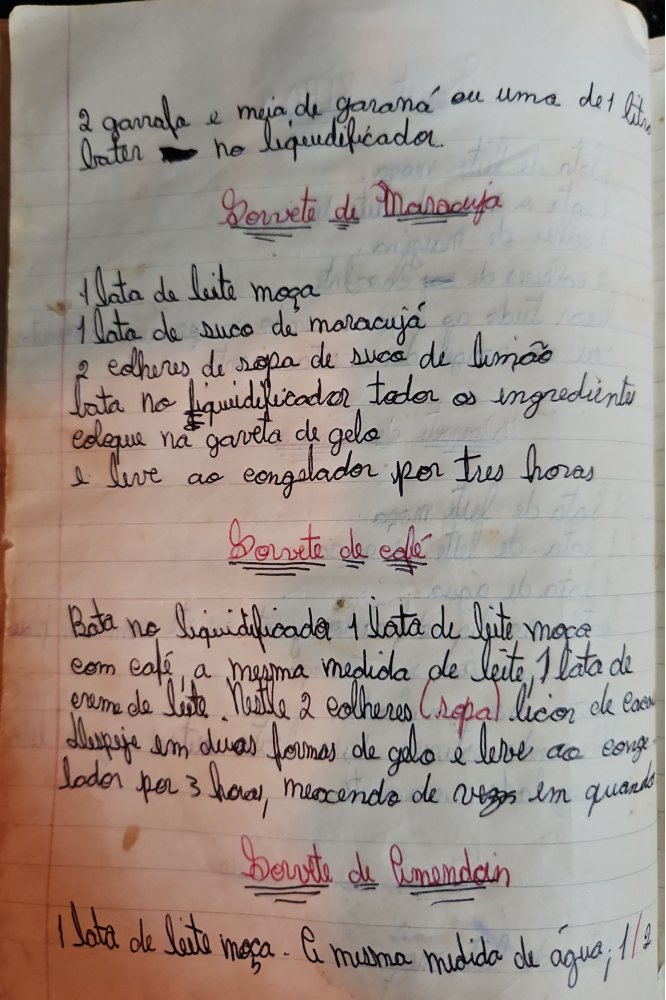 2 garrafa e meia de garaná ou uma de 1 litro
bater no liqeudificador.
Sorvete de Maracuja
1 lata de leite moça
1 lata de suco de maracujá
2 colheres de sopa de suco de limão
bata no liquidificador todor os ingrediente
coloque na gaveta de gelo
e leve ao congelador por tres horas
Sorvete de café
Bata no liquidificado 1 lata de leite moça
com café, a mesma medida de leite, 1 lata de
creme de leite. Nestle 2 colheres (sopa) licor de cacau
despeje em duas formas de gelo e leve ao conge-
lador por 3 horas, mexcendo de vez em quando
Sorvete de Amendoin
1 lata de leite moça. A mesma medida de água; 1/2